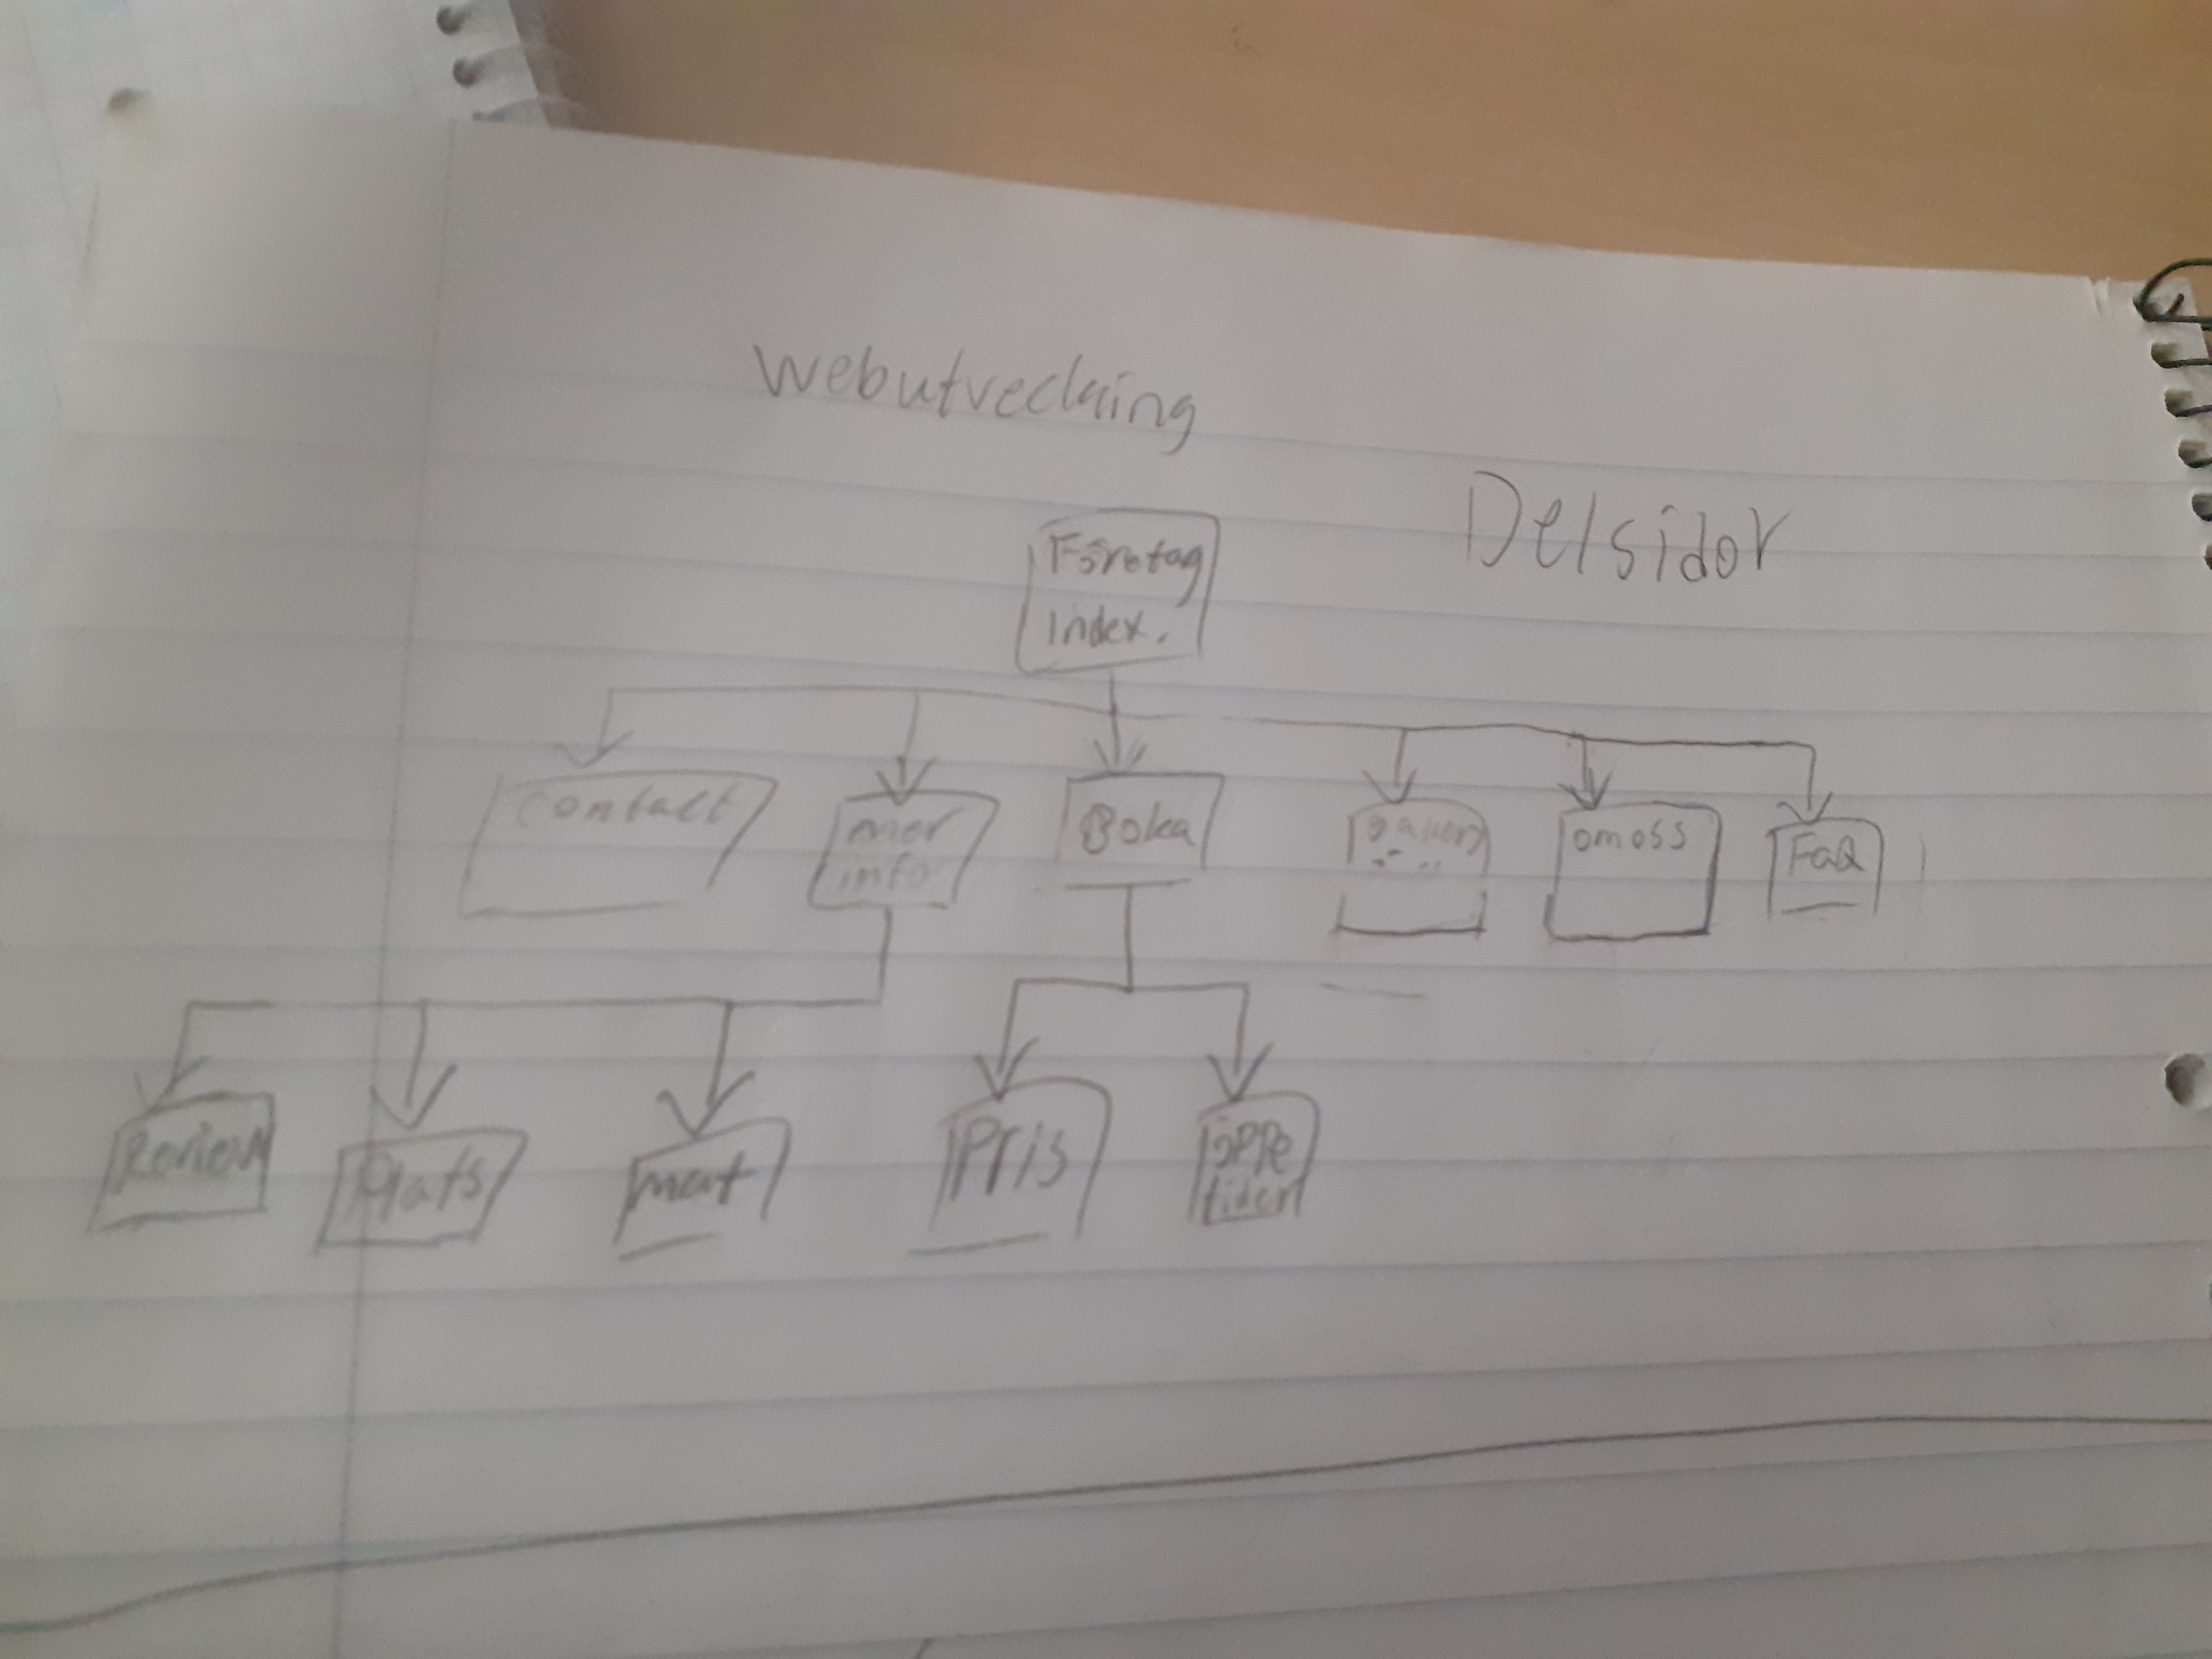 webutveckling
Delsidor
Företag
index.
contact
mer
info
Boka
omoss
FaQ
Review
Plats
mat
Pris
öppe
tider